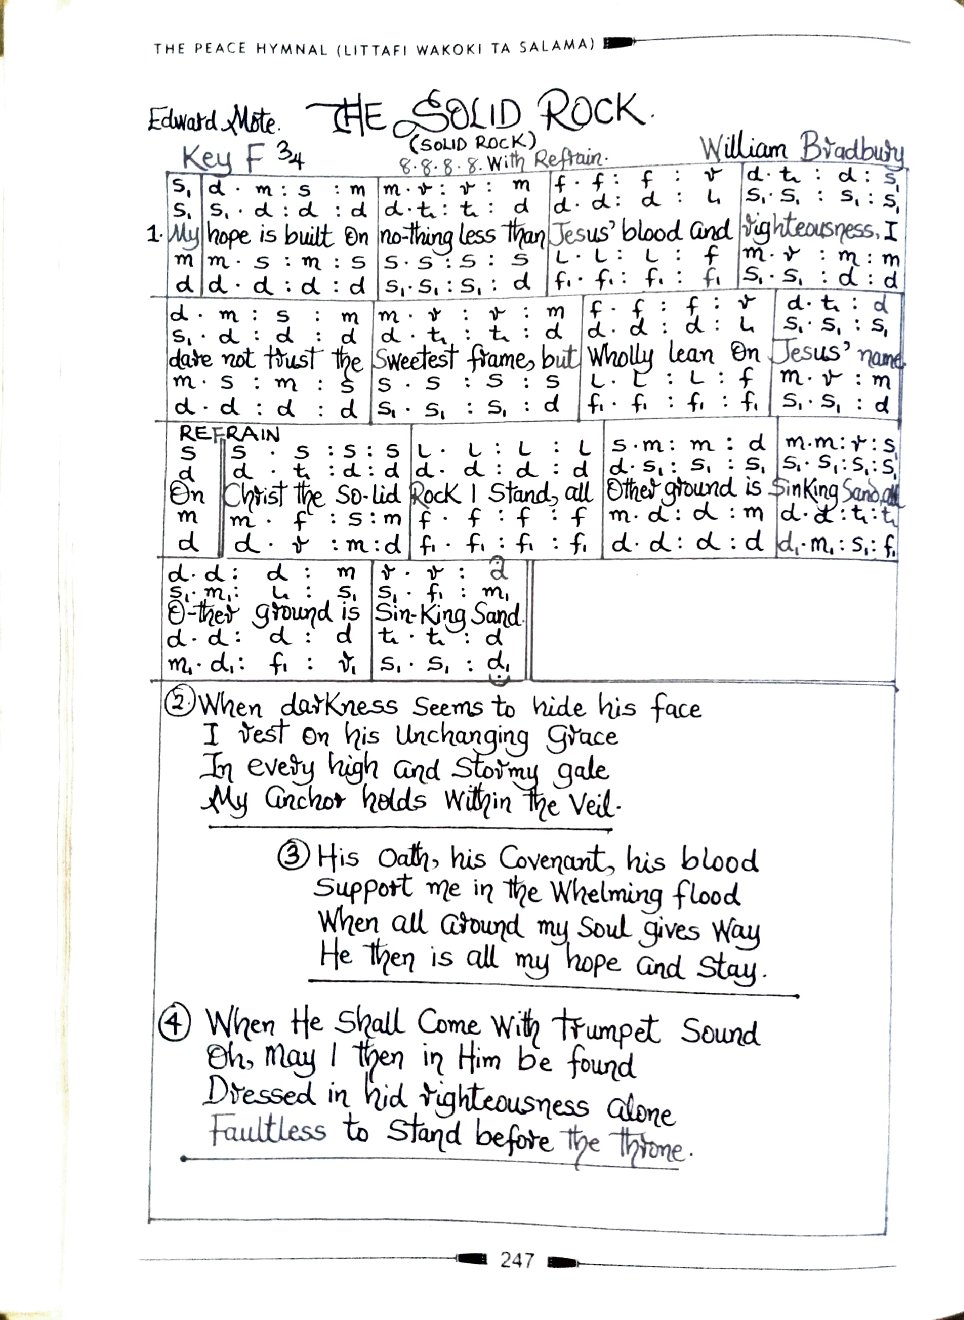 THE PEACE HYMNAL (LITTAFI WAKOKI TA SALAMA)
Edward Mote. THE SOLID ROCK.
(SOLID ROCK)
Key F 3/4 8.8.8.8. With Refrain. William Bradbury
s₁ | d . m : s : m | m . r : r : m | f . f : f : r | d . t₁ : d : s₁
s₁ | s₁ . d : d : d | d . t₁ : t₁ : d | d . d : d : l₁ | s₁ . s₁ : s₁ : s₁
1. My | hope is built on | no-thing less than | Jesus' blood and | righteousness, I
m | m . s : m : s | s . s : s : s | L . L : L : f | m . r : m : m
d | d . d : d : d | s₁ . s₁ : s₁ : d | f₁ . f₁ : f₁ : f₁ | s₁ . s₁ : d : d
d . m : s : m | m . r : r : m | f . f : f : r | d . t₁ : d
s₁ . d : d : d | d . t₁ : t₁ : d | d . d : d : l₁ | s₁ . s₁ : s₁
dare not trust the | Sweetest frame, but | Wholly lean on | Jesus' name
m . s : m : s | s . s : s : s | L . L : L : f | m . r : m
d . d : d : d | s₁ . s₁ : s₁ : d | f₁ . f₁ : f₁ : f₁ | s₁ . s₁ : d
REFRAIN
s || s . s : s : s | L . L : L : L | s . m : m : d | m . m : r : s
d || d . t₁ : d : d | d . d : d : d | d . s₁ : s₁ : s₁ | s₁ . s₁ : s₁ : s₁
On || Christ the So-lid | Rock I Stand, all | Other ground is | Sinking Sand, all
m || m . f : s : m | f . f : f : f | m . d : d : m | d . d : t₁ : t₁
d || d . r : m : d | f₁ . f₁ : f₁ : f₁ | d . d : d : d | d₁ . m₁ : s₁ : f₁
d . d : d : m | r . r : d
s₁ . m₁ : l₁ : s₁ | s₁ . f₁ : m₁
O-ther ground is | Sin-King Sand.
d . d : d : d | t₁ . t₁ : d
m₁ . d₁ : f₁ : r₁ | s₁ . s₁ : d₁
② When darkness Seems to hide his face
I rest on his Unchanging Grace
In every high and Stormy gale
My anchor holds within the Veil.
③ His Oath, his Covenant, his blood
Support me in the Whelming flood
When all around my Soul gives Way
He then is all my hope and Stay.
④ When He Shall Come With trumpet Sound
Oh, May I then in Him be found
Dressed in hid righteousness alone
Faultless to Stand before the throne.
247